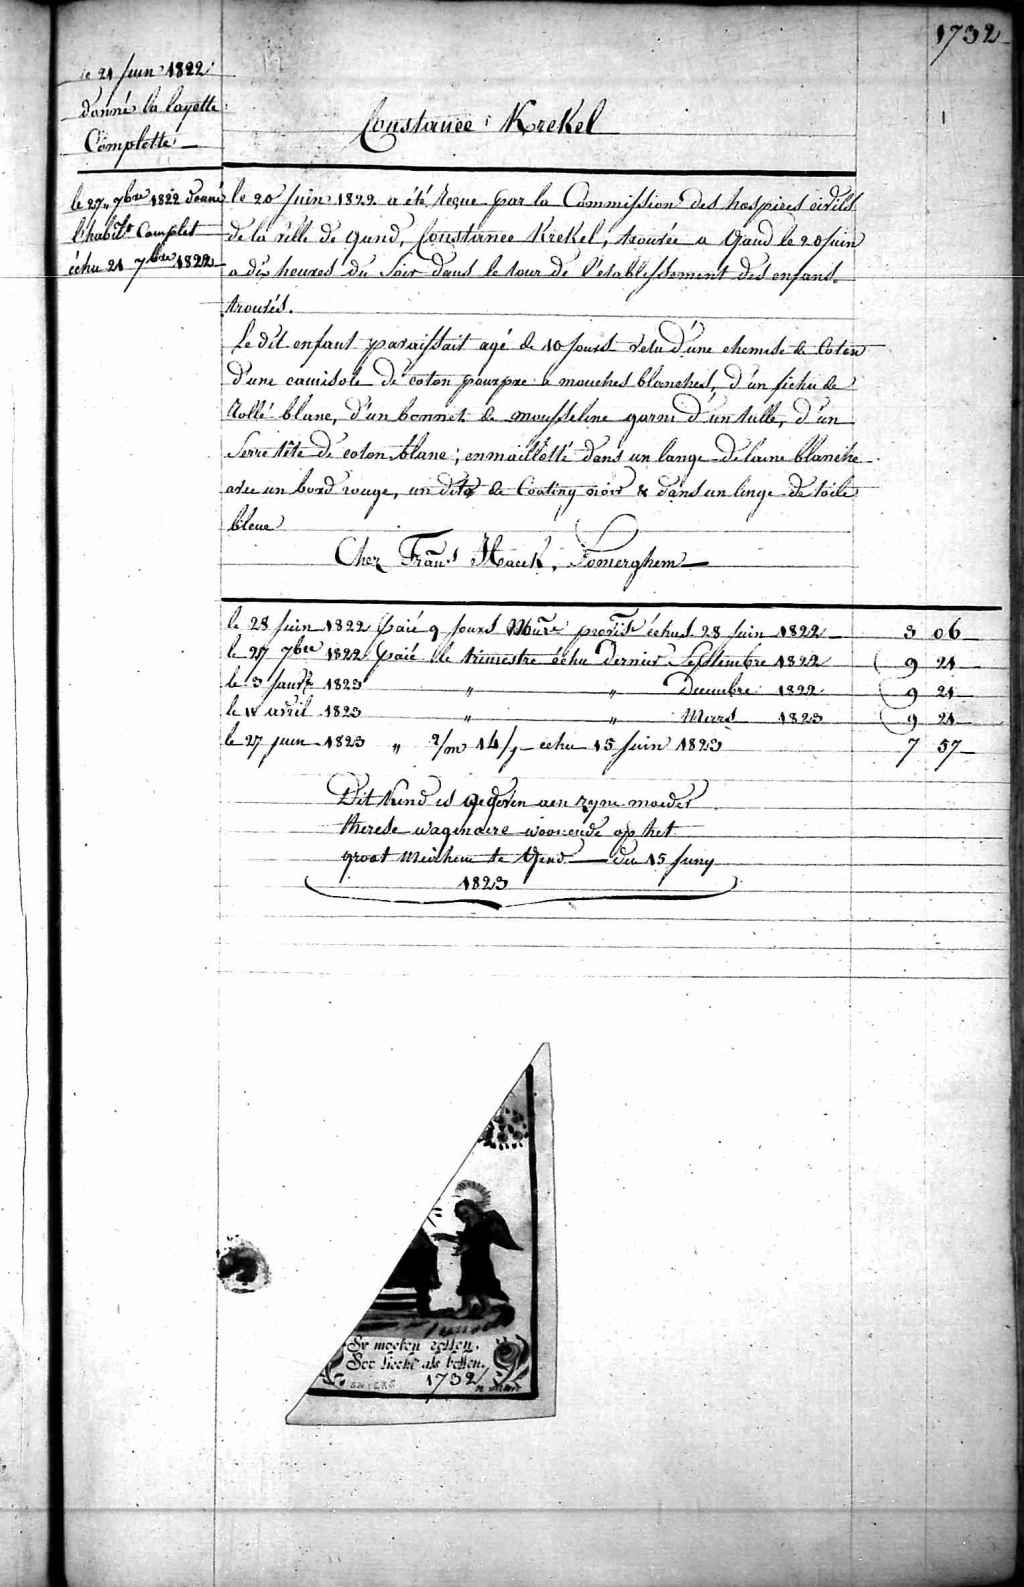 1732
le 21 Juin 1822
donné la layette
Complette
Constance Krekel
le 27 7bre 1822 donné
l'habilt Complet
échu 21 7bre 1822
le 20 Juin 1822 a été reçue par la Commission des hospices civils
de la ville de Gand, Constance Krekel, trouvée a Gand le 20 Juin
a dix heures du Soir dans le tour de l'etablissement des enfans
trouvés.
Le dit enfant paraissait agé de 10 Jours vetu d'une chemise de Coton
d'une camisole de coton pourpre a mouches blanches, d'un fichu de
blanc, d'un bonnet de mousseline garni d'un tulle, d'un
Serre tête de coton blanc; enmaillotté dans un lange de laine blanche
avec un bord rouge, un dito de Coating noir & dans un linge de toile
bleue
Chez Frans Haeck, Somerghem
le 28 Juin 1822 Paié 9 Jours échus 28 Juin 1822 3 06
le 27 7bre 1822 Paié le trimestre échu dernier Septembre 1822 9 21
le 3 Janvr 1823 " " Decembre 1822 9 21
le avril 1823 " " Mars 1823 9 21
le 27 juin 1823 " 2/m 14/j échu 15 Juin 1823 7 57
Dit kind is gegeven aen zyne moeder
therese wagenaere woonende op het
groot Meirhem te Gend den 15 Juny
1823
Sy moeten
als
1732